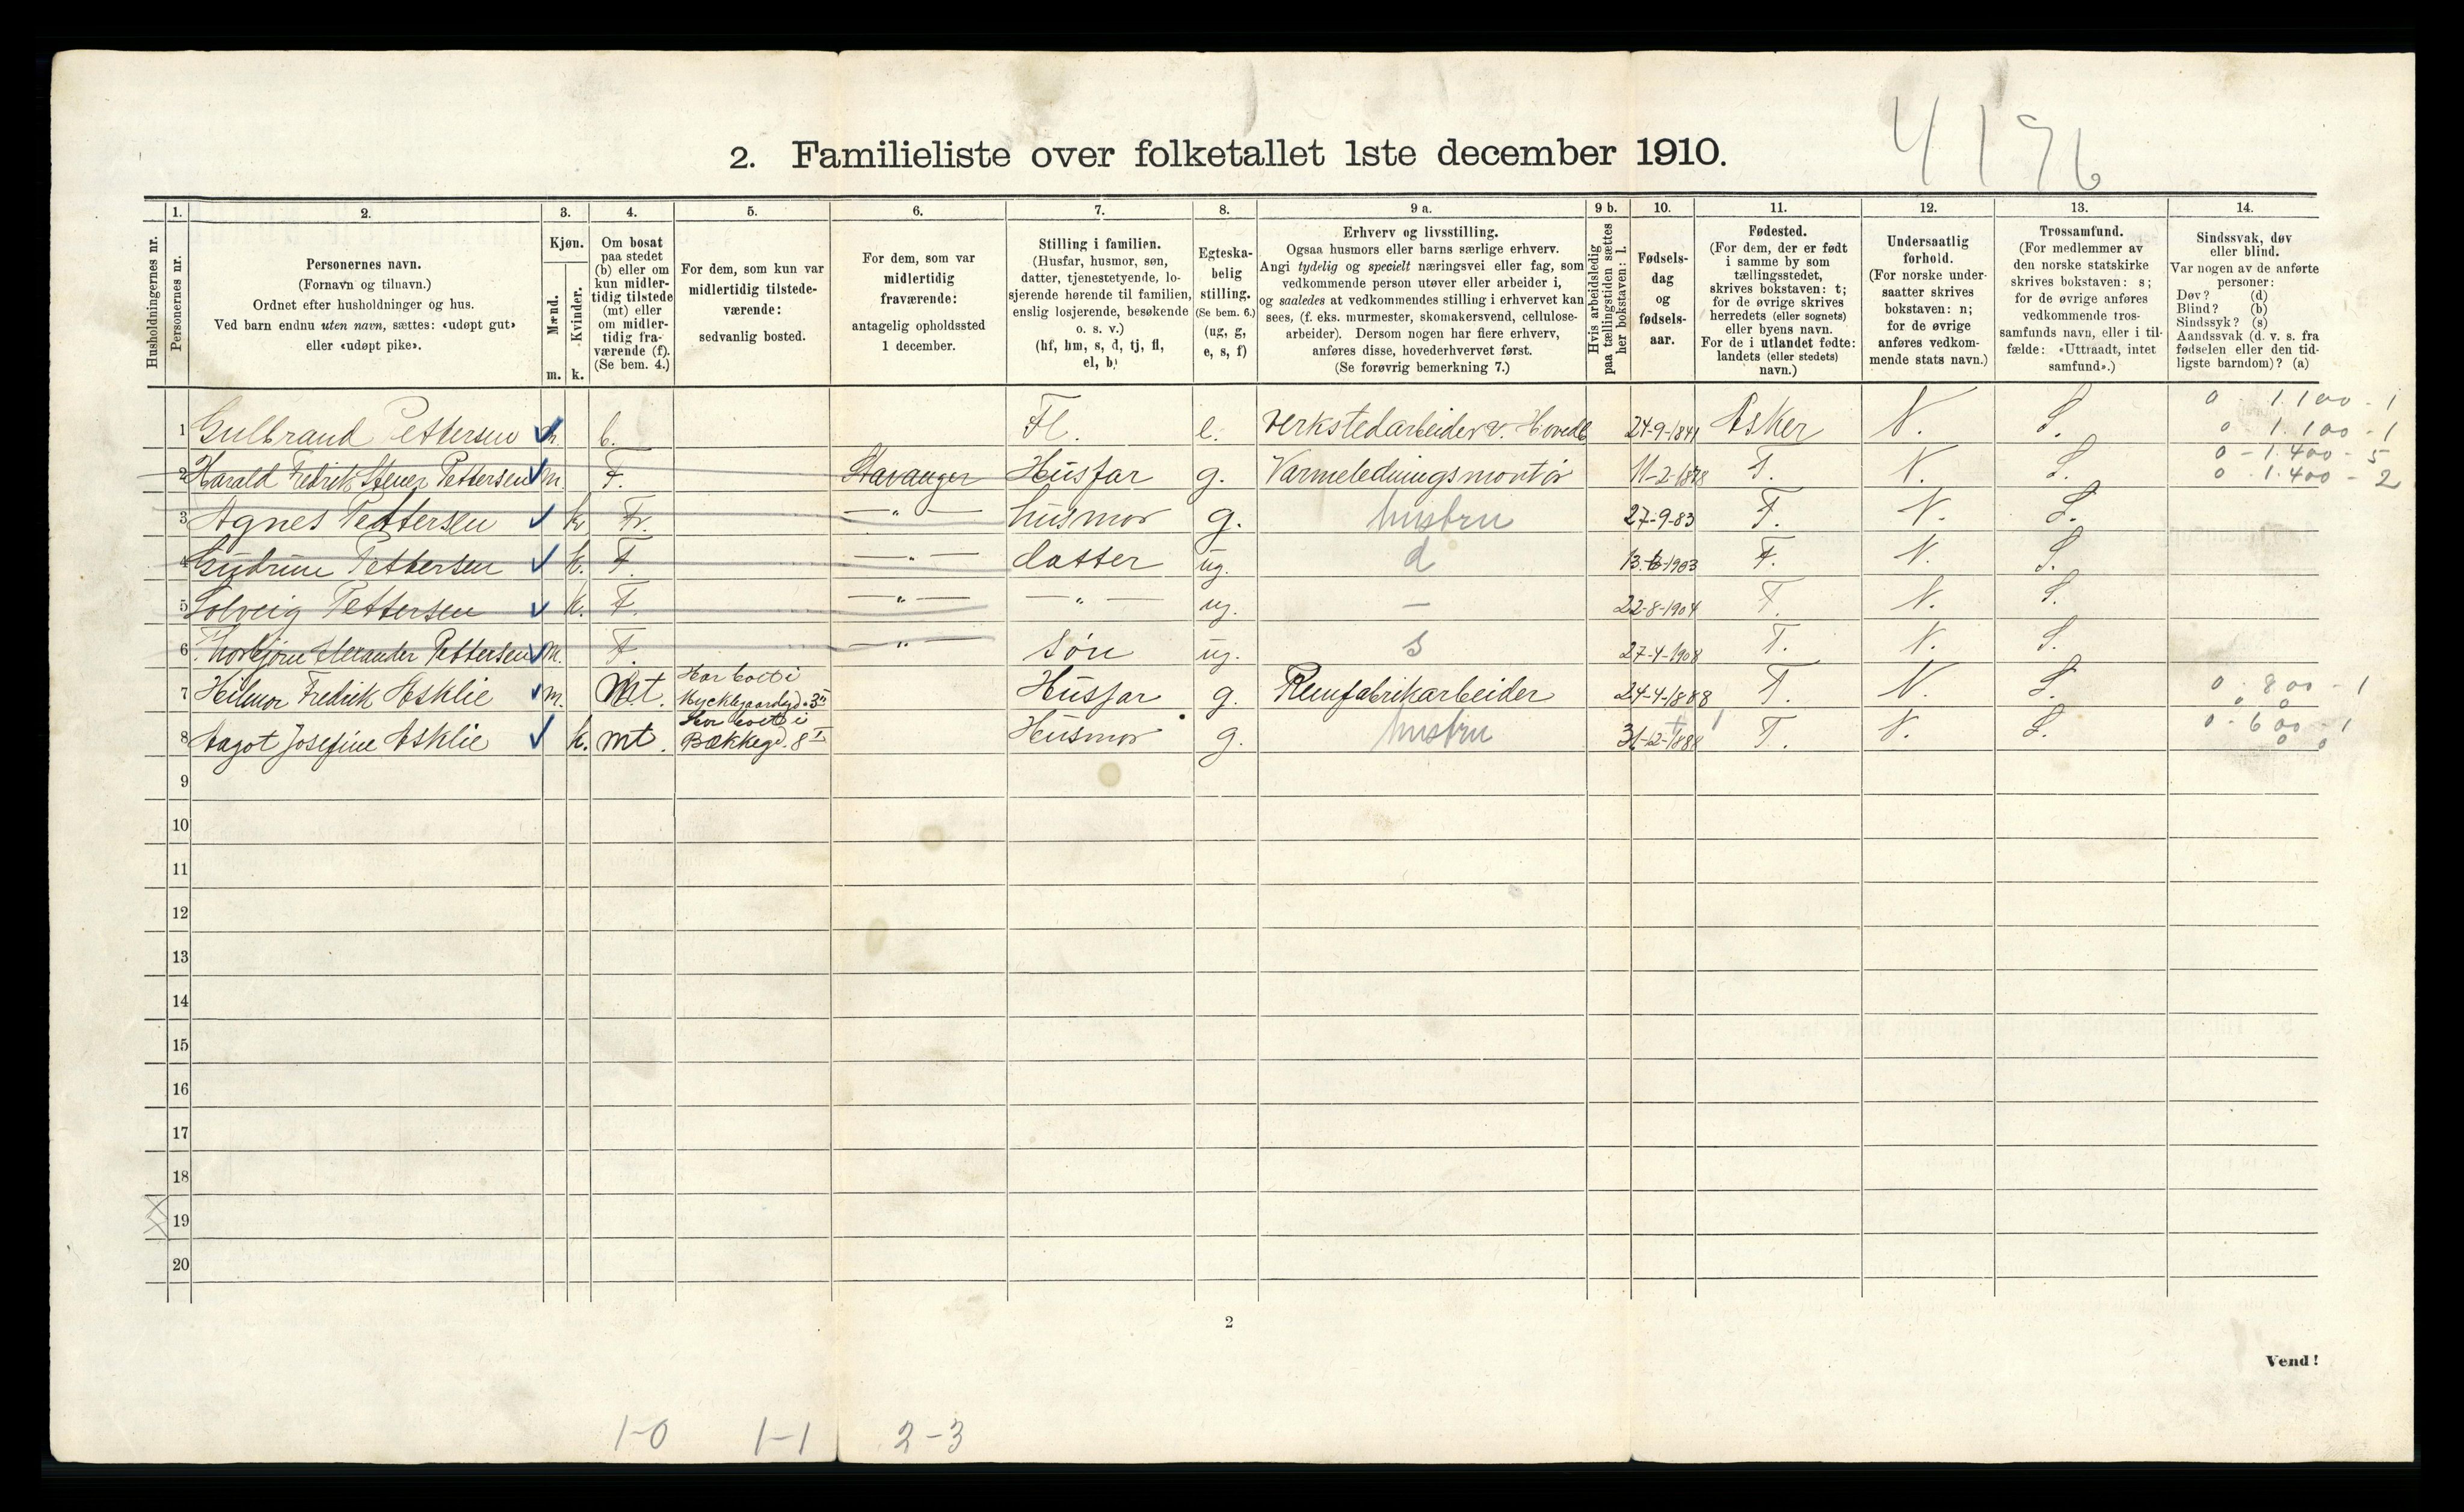 4176
2. Familieliste over folketallet 1ste december 1910.
Husholdningernes nr.
1. Personernes nr.
2. Personernes navn.
(Fornavn og tilnavn.)
Ordnet efter husholdninger og hus.
Ved barn endnu uten navn, sættes: «udøpt gut»
eller «udøpt pike».
3. Kjøn.
Mænd. m.
Kvinder. k.
4. Om bosat
paa stedet
(b) eller om
kun midler-
tidig tilstede
(mt) eller
om midler-
tidig fra-
værende (f).
(Se bem. 4.)
5. For dem, som kun var
midlertidig tilstede-
værende:
sedvanlig bosted.
6. For dem, som var
midlertidig
fraværende:
antagelig opholdssted
1 december.
7. Stilling i familien.
(Husfar, husmor, søn,
datter, tjenestetyende, lo-
sjerende hørende til familien,
enslig losjerende, besøkende
o. s. v.)
(hf, hm, s, d, tj, fl,
el, b)
8. Egteska-
belig
stilling.
(Se bem. 6.)
(ug, g,
e, s, f)
9 a. Erhverv og livsstilling.
Ogsaa husmors eller barns særlige erhverv.
Angi tydelig og specielt næringsvei eller fag, som
vedkommende person utøver eller arbeider i,
og saaledes at vedkommendes stilling i erhvervet kan
sees, (f. eks. murmester, skomakersvend, cellulose-
arbeider). Dersom nogen har flere erhverv,
anføres disse, hovederhvervet først.
(Se forøvrig bemerkning 7.)
9 b. Hvis arbeidsledig
paa tællingstiden sættes
her bokstaven: l.
10. Fødsels-
dag
og
fødsels-
aar.
11. Fødested.
(For dem, der er født
i samme by som
tællingsstedet,
skrives bokstaven: t;
for de øvrige skrives
herredets (eller sognets)
eller byens navn.
For de i utlandet fødte:
landets (eller stedets)
navn.)
12. Undersaatlig
forhold.
(For norske under-
saatter skrives
bokstaven: n;
for de øvrige
anføres vedkom-
mende stats navn.)
13. Trossamfund.
(For medlemmer av
den norske statskirke
skrives bokstaven: s;
for de øvrige anføres
vedkommende tros-
samfunds navn, eller i til-
fælde: «Uttraadt, intet
samfund».)
14. Sindssvak, døv
eller blind.
Var nogen av de anførte
personer:
Døv? (d)
Blind? (b)
Sindssyk? (s)
Aandssvak (d. v. s. fra
fødselen eller den tid-
ligste barndom)? (a)
1 Gulbrand Pettersen m. b. Fl. e. Verkstedarbeider v. Hovedb 24-9-1841 Asker N. S. 0 - 1.100 - 1
0 1.100 - 1
2 Harald Fredrik Stener Pettersen m. F. Stavanger Husfar g. Varmeledningsmontör 11-2-1878 T. N. S. 0 - 1.400 - 5
0 - 1.400 - 2
3 Agnes Pettersen k. Fr. — „ — husmor g. hustru 27-9-83 T. N. S.
4 Gudrun Pettersen k. F. — „ — datter ug. d 1903 T. N. S.
5 Solveig Pettersen k. F. — „ — — „ — ug. — 22-8-1904 T. N. S.
6 Thorbjörn Alexander Pettersen m. F. — „ — Sön ug. s 27-4-1908 T. N. S.
7 Hilmor Fredrik Asklie m. mt. Har boet i Husfar g. Remfabrikarbeider 24-4-1888 T. N. S. 0 - 800 - 1
0 0
8 Aagot Josefine Asklie k. mt. Har boet i
Bækkegd. 8 I Husmor g. hustru 31-12-1888 T. N. S. 0 - 600 - 1
0 0
9
10
11
12
13
14
15
16
17
18
19
20
2
Vend!
1-0 1-1 2-3